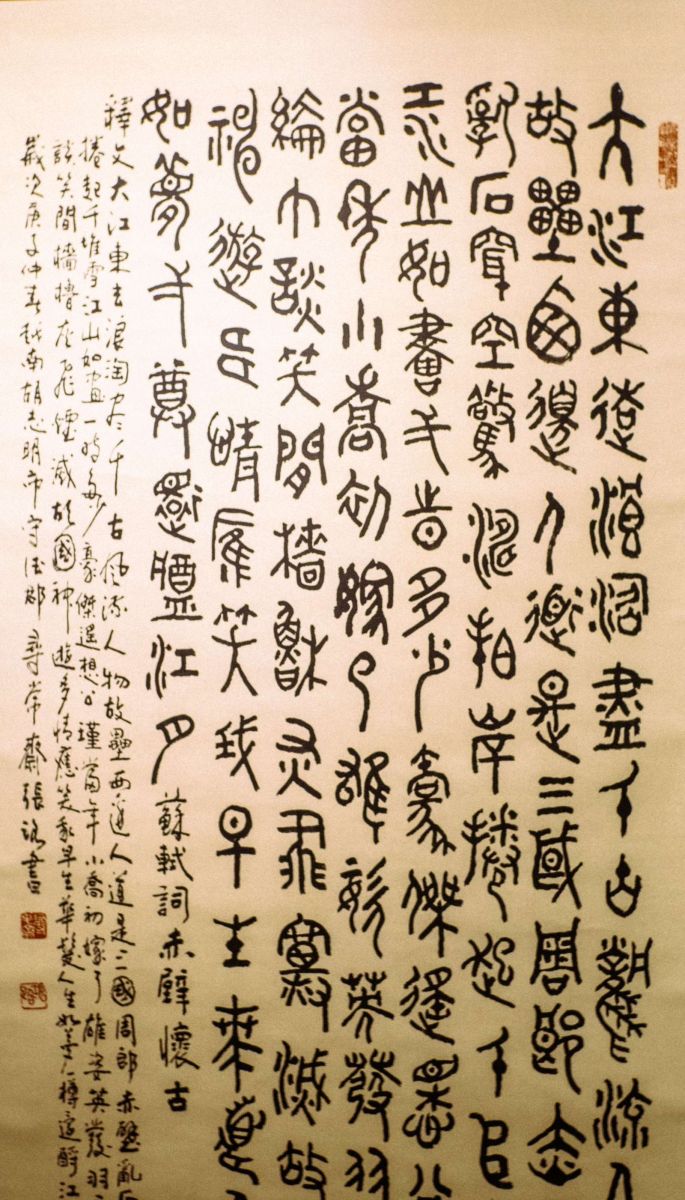 大江東去浪淘盡千古風流人
故壘西邊人道是三國周郎赤
亂石穿空驚濤拍岸捲起千堆
江山如畫一時多少豪傑遙想公
當年小喬初嫁了雄姿英發羽
綸巾談笑間檣艣灰飛煙滅故
神遊多情應笑我早生華髮
如夢一尊還酹江月
蘇軾詞赤壁懷古
釋文大江東去浪淘盡千古風流人物故壘西邊人道是三國周郎赤壁亂石
捲起千堆雪江山如畫一時多少豪傑遙想公瑾當年小喬初嫁了雄姿英發羽
談笑間檣櫓灰飛煙滅故國神遊多情應笑我早生華髮人生如夢一樽還酹江
歲次庚子仲春越南胡志明市守德郡尋常齋張書